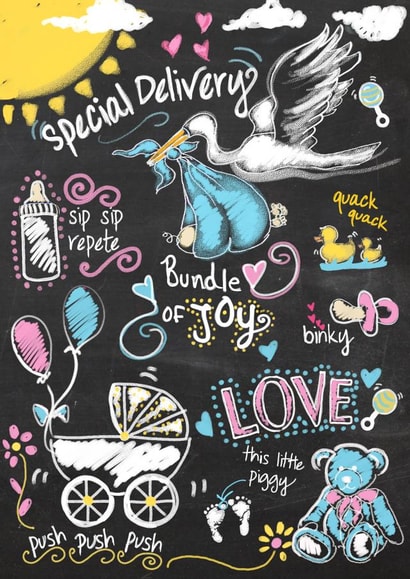 Special Delivery
quack
quack
sip sip
repete
Bundle
of JOY
binky
LOVE
this little
piggy
push push push